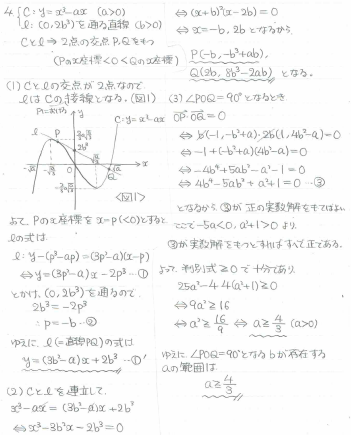 4 C: y=x³-ax (a>0)
l: (0,2b³)を通る直線 (b>0)
Cとl ⇒ 2点の交点P,Qをもつ
(Pのx座標<0<Qのx座標)
(1) Cとlの交点が2点なので
lはCの接線となる。(図1)
Pにおける
y
C: y=x³-ax
l
P
2b³
-√a
0
√a
x
Q
<図1>
よって Pのx座標をx=p(<0)とすると
lの式は
l: y-(p³-ap)=(3p²-a)(x-p)
⇔ y=(3p²-a)x-2p³ …①
とかけ、(0,2b³)を通るので
2b³=-2p³
∴p=-b …②
ゆえに l(=直線PQ)の式は
y=(3b²-a)x+2b³ …①'
(2) Cとlを連立して、
x³-ax=(3b²-a)x+2b³
⇔x³-3b²x-2b³=0
⇔(x+b)²(x-2b)=0
⇔x=-b, 2b となるから
P(-b, -b³+ab),
Q(2b, 8b³-2ab) となる。
(3) ∠POQ=90°となるとき
OP・OQ=0
⇔b(-1,-b²+a)・2b(1,4b²-a)=0
⇔-1+(-b²+a)(4b²-a)=0
⇔-4b⁴+5ab²-a²-1=0
⇔4b⁴-5ab²+a²+1=0 …③
となるから ③が正の実数解をもてばよい
ここで -5a<0, a²+1>0 より
③が実数解をもつとすれば すべて正である。
よって 判別式≧0で十分であり、
25a²-4・4(a²+1)≧0
⇔9a²≧16
⇔a²≧16/9 ⇔ a≧4/3 (a>0)
ゆえに ∠POQ=90°となるbが存在する
aの範囲は
a≧4/3